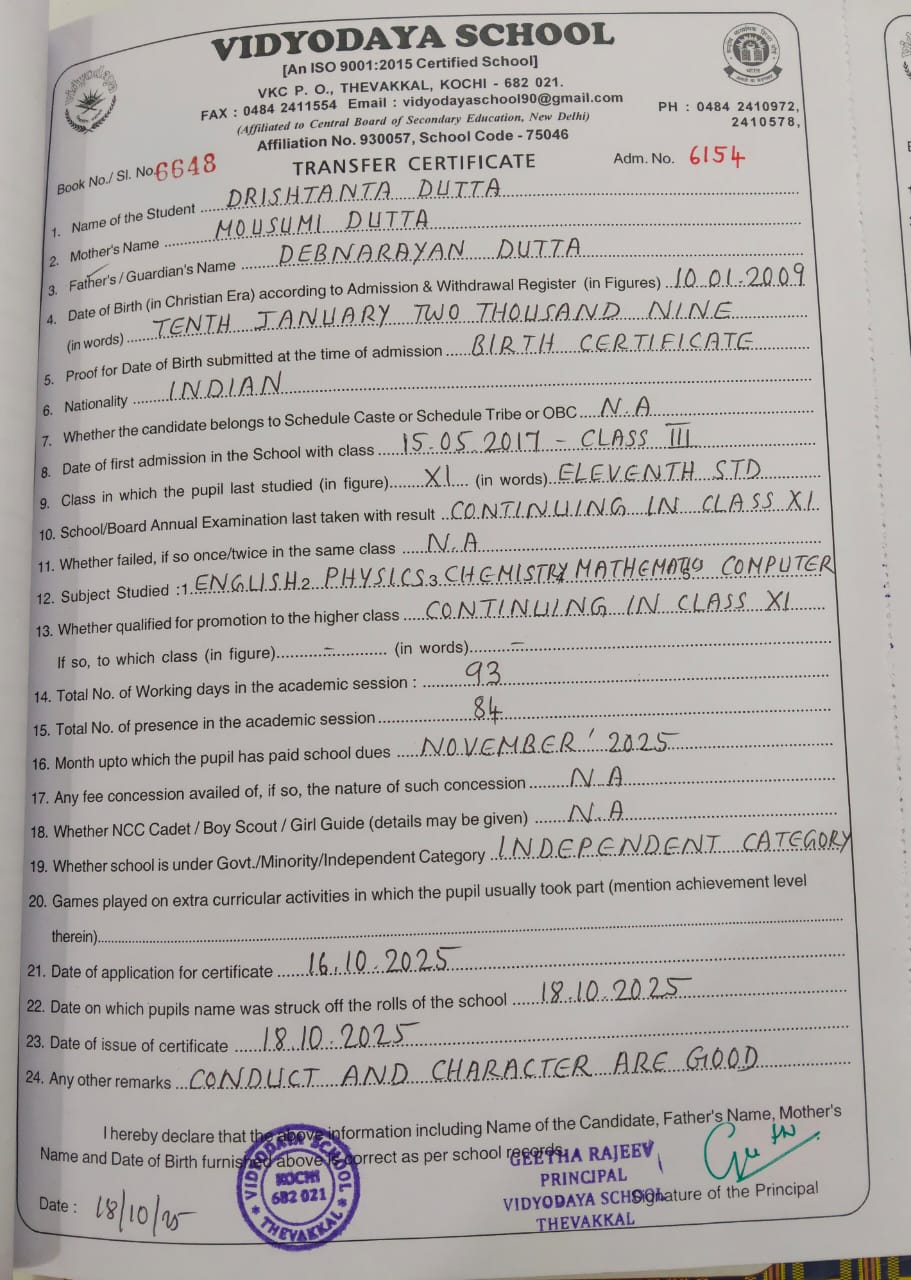 VIDYODAYA SCHOOL
[An ISO 9001:2015 Certified School]
VKC P. O., THEVAKKAL, KOCHI - 682 021.
FAX : 0484 2411554 Email : vidyodayaschool90@gmail.com
PH : 0484 2410972,
2410578,
(Affiliated to Central Board of Secondary Education, New Delhi)
Affiliation No. 930057, School Code - 75046
Book No./ Sl. No. 6648 TRANSFER CERTIFICATE Adm. No. 6154
1. Name of the Student DRISHTANTA DUTTA
2. Mother's Name MOUSUMI DUTTA
3. Father's / Guardian's Name DEBNARAYAN DUTTA
4. Date of Birth (in Christian Era) according to Admission & Withdrawal Register (in Figures) 10.01.2009
(in words) TENTH JANUARY TWO THOUSAND NINE
5. Proof for Date of Birth submitted at the time of admission BIRTH CERTIFICATE
6. Nationality INDIAN
7. Whether the candidate belongs to Schedule Caste or Schedule Tribe or OBC N.A
8. Date of first admission in the School with class 15.05.2017 - CLASS III
9. Class in which the pupil last studied (in figure) XI (in words) ELEVENTH STD
10. School/Board Annual Examination last taken with result CONTINUING IN CLASS XI
11. Whether failed, if so once/twice in the same class N.A
12. Subject Studied :1 ENGLISH 2 PHYSICS 3 CHEMISTRY COMPUTER
13. Whether qualified for promotion to the higher class CONTINUING IN CLASS XI
If so, to which class (in figure) - (in words) -
14. Total No. of Working days in the academic session : 93
15. Total No. of presence in the academic session 84
16. Month upto which the pupil has paid school dues NOVEMBER ' 2025
17. Any fee concession availed of, if so, the nature of such concession N.A
18. Whether NCC Cadet / Boy Scout / Girl Guide (details may be given) N.A
19. Whether school is under Govt./Minority/Independent Category INDEPENDENT CATEGORY
20. Games played on extra curricular activities in which the pupil usually took part (mention achievement level
therein)
21. Date of application for certificate 16.10.2025
22. Date on which pupils name was struck off the rolls of the school 18.10.2025
23. Date of issue of certificate 18.10.2025
24. Any other remarks CONDUCT AND CHARACTER ARE GOOD
I hereby declare that the above information including Name of the Candidate, Father's Name, Mother's
Name and Date of Birth furnished above is correct as per school records.
GEETHA RAJEEV
PRINCIPAL
VIDYODAYA SCHOOL
THEVAKKAL
Signature of the Principal
Date : 18/10/25
VIDYODAYA SCHOOL
KOCHI
682 021
THEVAKKAL